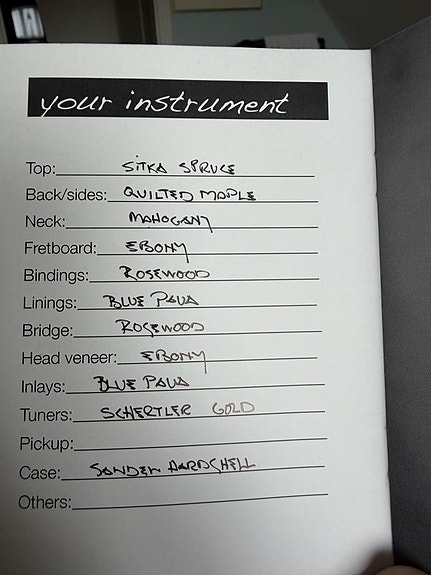 your instrument
Top: SITKA SPRUCE
Back/sides: QUILTED MAPLE
Neck: MAHOGANY
Fretboard: EBONY
Bindings: ROSEWOOD
Linings: BLUE PAUA
Bridge: ROSEWOOD
Head veneer: EBONY
Inlays: BLUE PAUA
Tuners: SCHERTLER GOLD
Pickup:
Case: SONDEN HARDSHELL
Others: